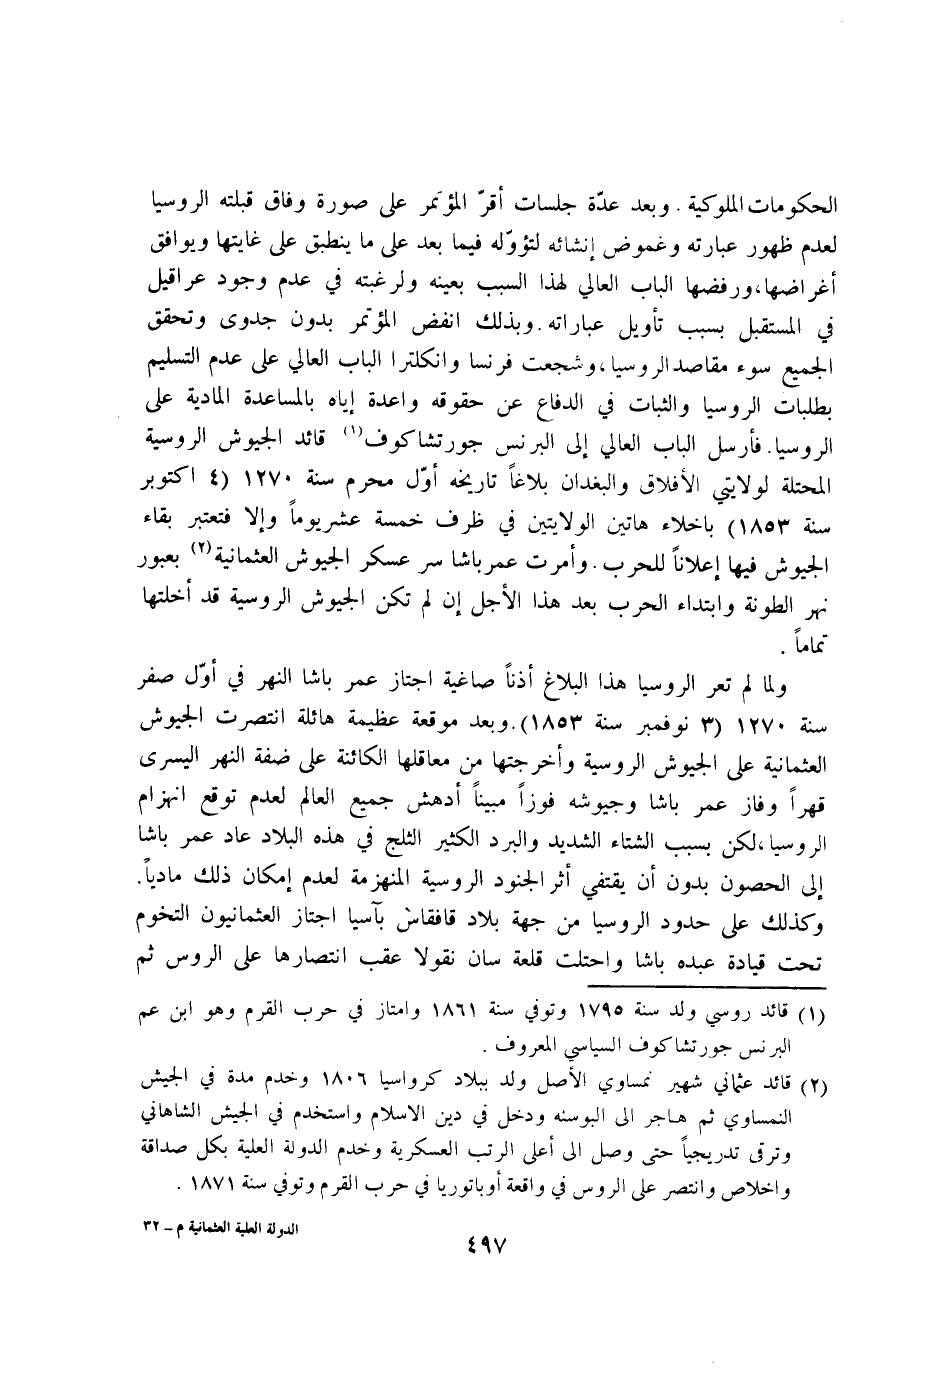 الحكومات الملوكية . وبعد عدّة جلسات أقرّ المؤتمر على صورة وفاق قبلته الروسيا
لعدم ظهور عبارته وغموض إنشائه لتؤوّله فيما بعد على ما ينطبق على غايتها ويوافق
أغراضها، ورفضها الباب العالي لهذا السبب بعينه ولرغبته في عدم وجود عراقيل
في المستقبل بسبب تأويل عباراته . وبذلك انفض المؤتمر بدون جدوى وتحقق
الجميع سوء مقاصد الروسيا ، وشجعت فرنسا وانكلترا الباب العالي على عدم التسليم
بطلبات الروسيا والثبات في الدفاع عن حقوقه واعدة إياه بالمساعدة المادية على
الروسيا . فأرسل الباب العالي إلى البرنس جورتشاكوف (١) قائد الجيوش الروسية
المحتلة لولايتي الأفلاق والبغدان بلاغاً تاريخه أوّل محرم سنة ١٢٧٠ (٤ اكتوبر
سنة ١٨٥٣) باخلاء هاتين الولايتين في ظرف خمسة عشر يوماً وإلا فتعتبر بقاء
الجيوش فيها إعلاناً للحرب . وأمرت عمر باشا سر عسكر الجيوش العثمانية (٢) بعبور
نهر الطونة وابتداء الحرب بعد هذا الأجل إن لم تكن الجيوش الروسية قد أخلتها
تماماً .
ولما لم تعر الروسيا هذا البلاغ أذناً صاغية اجتاز عمر باشا النهر في أوّل صفر
سنة ١٢٧٠ (٣ نوفمبر سنة ١٨٥٣) . وبعد موقعة عظيمة هائلة انتصرت الجيوش
العثمانية على الجيوش الروسية وأخرجتها من معاقلها الكائنة على ضفة النهر اليسرى
قهراً وفاز عمر باشا وجيوشه فوزاً مبيناً أدهش جميع العالم لعدم توقع انهزام
الروسيا ، لكن بسبب الشتاء الشديد والبرد الكثير الثلج في هذه البلاد عاد عمر باشا
إلى الحصون بدون أن يقتفي أثر الجنود الروسية المنهزمة لعدم إمكان ذلك مادياً.
وكذلك على حدود الروسيا من جهة بلاد قافقاس بآسيا اجتاز العثمانيون التخوم
تحت قيادة عبده باشا واحتلت قلعة سان نقولا عقب انتصارها على الروس ثم
(١) قائد روسي ولد سنة ١٧٩٥ وتوفي سنة ١٨٦١ وامتاز في حرب القرم وهو ابن عم
البرنس جورتشاكوف السياسي المعروف .
(٢) قائد عثماني شهير نمساوي الأصل ولد ببلاد كرواسيا ١٨٠٦ وخدم مدة في الجيش
النمساوي ثم هاجر الى البوسنه ودخل في دين الاسلام واستخدم في الجيش الشاهاني
وترقى تدريجياً حتى وصل الى أعلى الرتب العسكرية وخدم الدولة العلية بكل صداقة
واخلاص وانتصر على الروس في واقعة أوباتوريا في حرب القرم وتوفي سنة ١٨٧١ .
الدولة العلية العثمانية م - ٣٢
٤٩٧